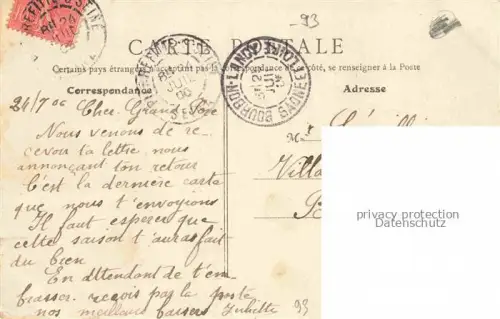 93
CARTE POSTALE
Certains pays étrangers n'acceptant pas la correspondance de ce côté, se renseigner à la Poste
Correspondance
Adresse
BOURBON-LANCY
SAONE ET LOIRE
24/7 06
Cher Grand Père
Nous venons de re
cevoir ta lettre, nous
annonçant ton retour
C'est la dernière carte
que nous t'envoyions
Il faut esperer que
cette saison t'auras fait
du bien
En attendant de t'em
brasser, reçois par la poste
nos meilleurs baisers Juliette
Villa
privacy protection
Datenschutz
93